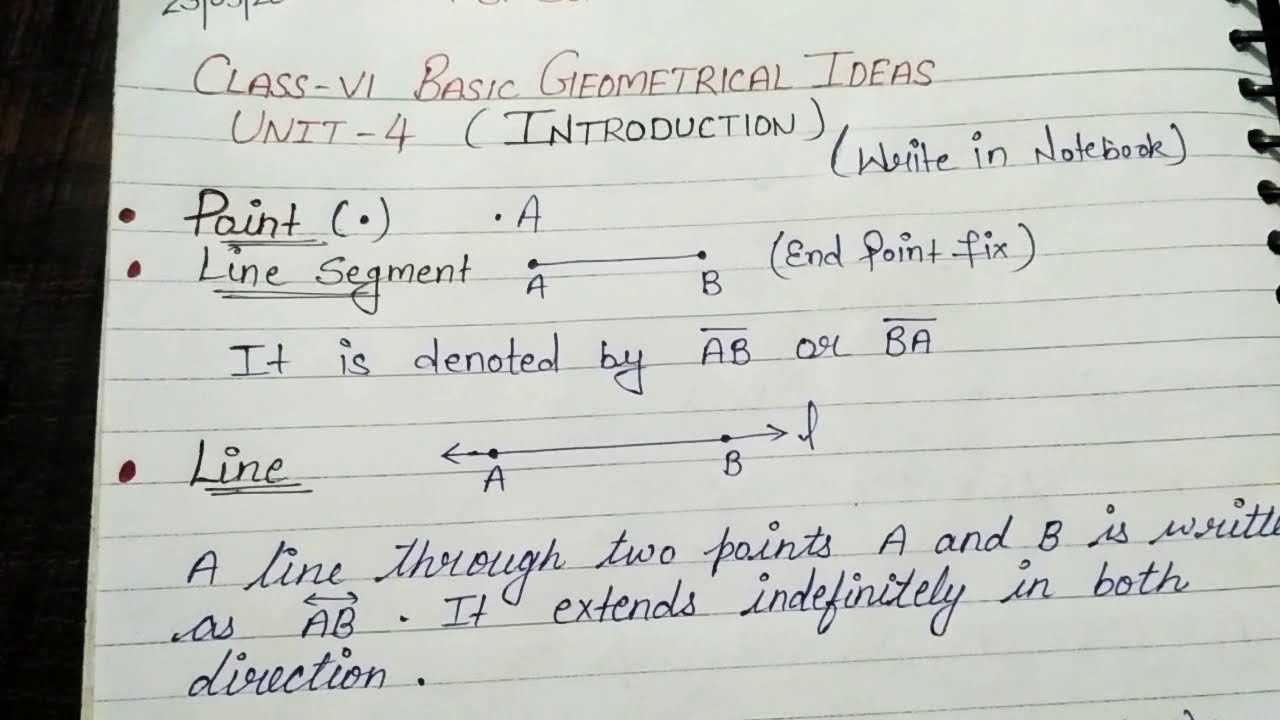 CLASS-VI BASIC GEOMETRICAL IDEAS
UNIT-4 (INTRODUCTION)
(Write in Notebook)
• Point (•) • A
• Line Segment A B (End Point fix)
It is denoted by A̅B̅ or B̅A̅
• Line A B l
A line through two points A and B is writte
as A⃡B⃡ . It extends indefinitely in both
direction .